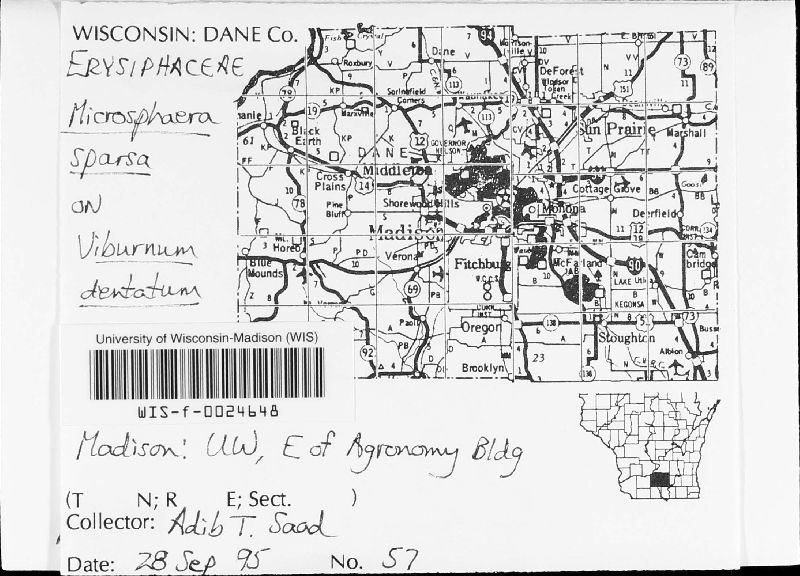 WISCONSIN: DANE Co.
ERYSIPHACEAE
Microsphaera
sparsa
ON
Viburnum
dentatum
University of Wisconsin-Madison (WIS)
WIS-f-0024648
Madison: UW, E of Agronomy Bldg
(T N; R E; Sect. )
Collector: Adib T. Saad
Date: 28 Sep 95 No. 57
Dane
Roxbury
DeForest
Springfield
Corners
Marxville
Sun Prairie
Marshall
Black
Earth
DANE
GOVERNOR
NELSON
Middleton
Cross
Plains
14
Cottage Grove
Pine
Bluff
Shorewood Hills
Monona
Deerfield
78
Madison
Horeb
Verona
Blue
Mounds
Fitchburg
McFarland
90
Cam
bridge
LAKE
KEGONSA
69
Paoli
Oregon
138
Stoughton
73
92
Brooklyn
23
Albion